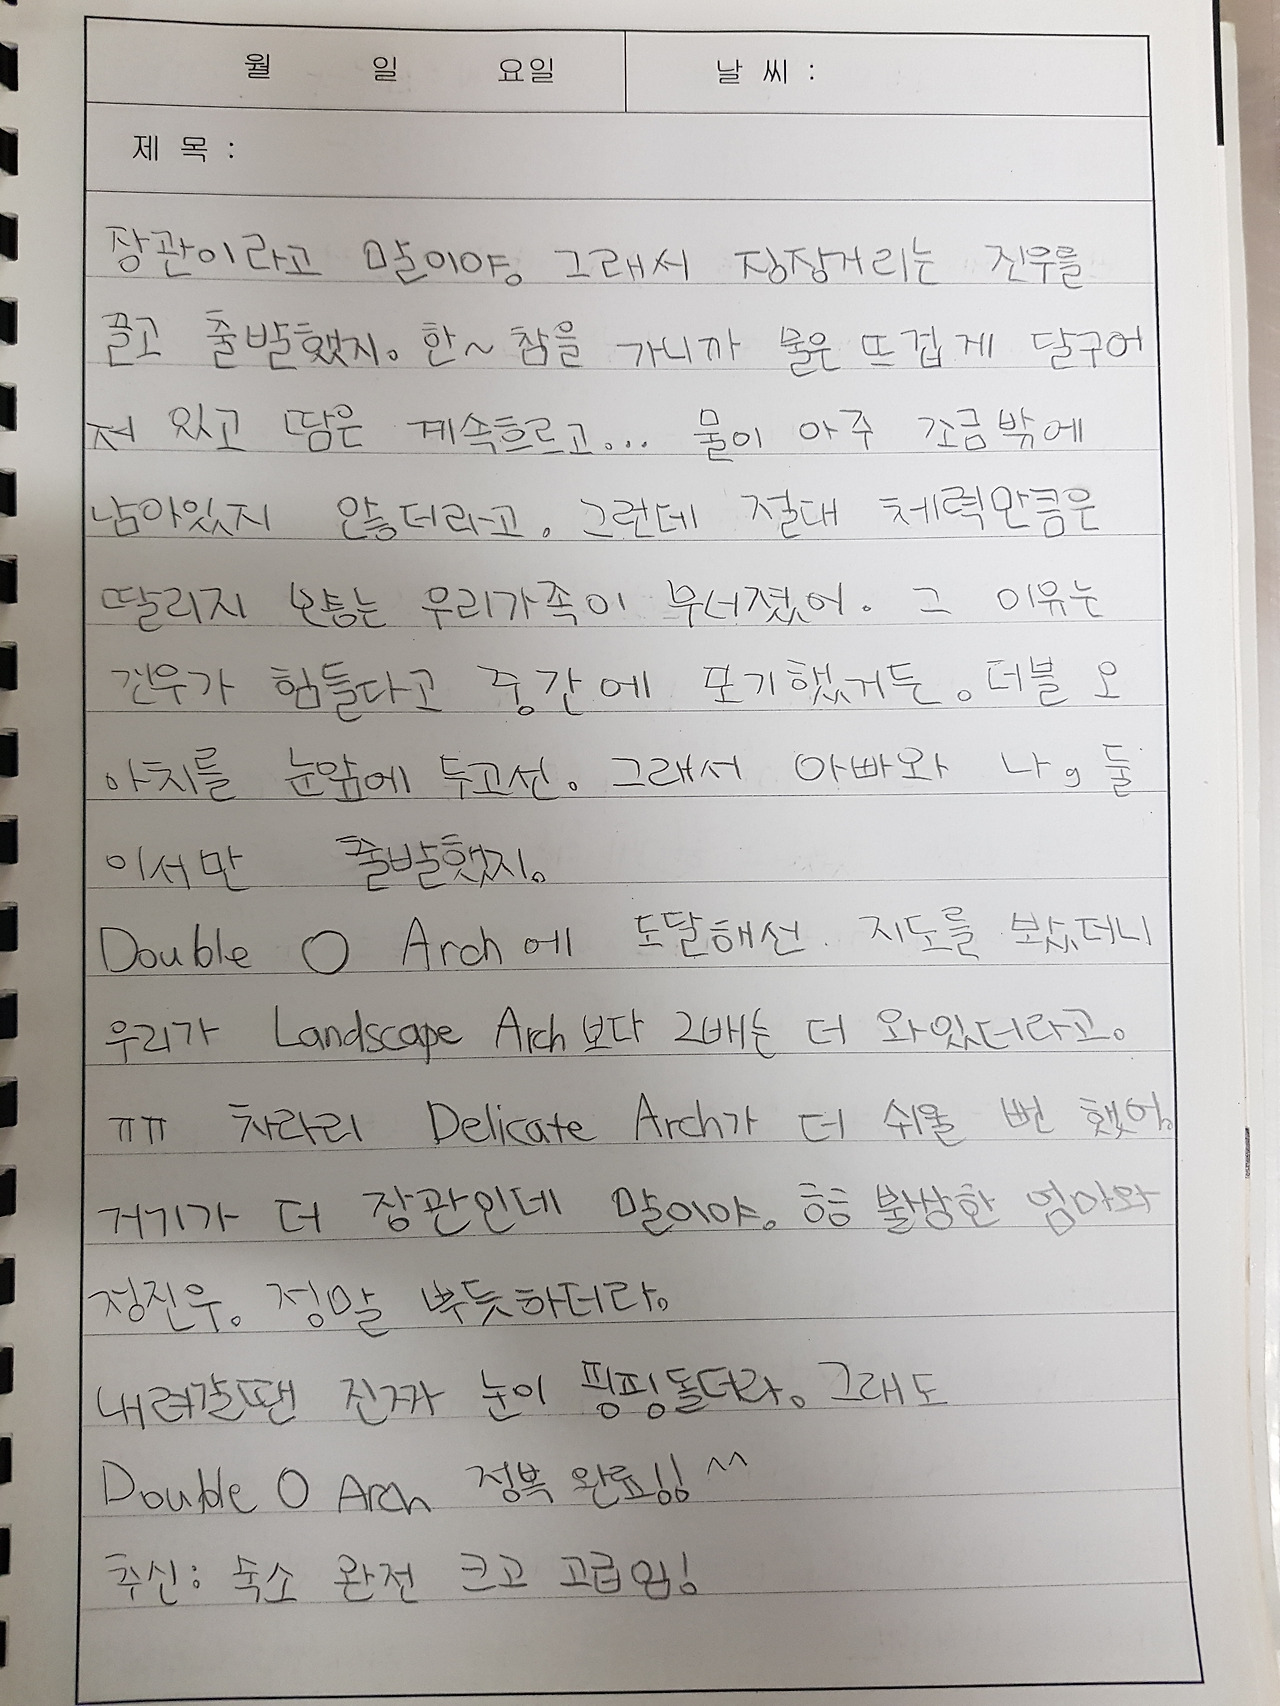 월 일 요일 날 씨 :
제 목 :
장관이라고 말이야. 그래서 징징거리는 진우를
끌고 출발했지. 한~참을 가니까 물은 뜨겁게 달구어
저 있고 땀은 계속흐르고... 물이 아주 조금밖에
남아있지 않더라고. 그런데 절대 체력만큼은
딸리지 않는 우리가족이 무너졌어. 그 이유는
진우가 힘들다고 중간에 포기했거든. 더블 오
아치를 눈앞에 두고선. 그래서 아빠와 나, 둘
이서만 출발했지.
Double O Arch에 도달해선 지도를 봤더니
우리가 Landscape Arch보다 2배는 더 와있더라고.
ㅠㅠ 차라리 Delicate Arch가 더 쉬울 뻔 했어.
거기가 더 장관인데 말이야. 흐흐 불쌍한 엄마와
정진우. 정말 뿌듯하더라.
내려갈땐 진짜 눈이 핑핑돌더라. 그래도
Double O Arch 정복 완료!! ^^
추신: 숙소 완전 크고 고급임!